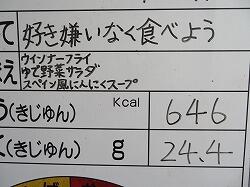 て 好き嫌いなく食べよう
え ウインナーフライ
ゆで野菜サラダ
スペイン風にんにくスープ
う(きじゅん) Kcal 646
く(きじゅん) g 24.4